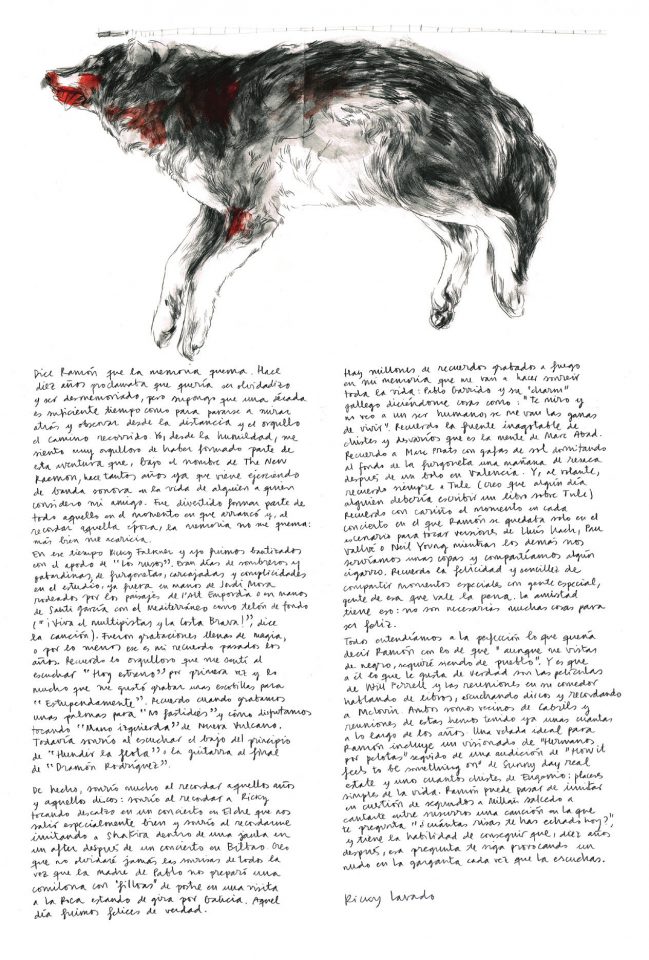 Dice Ramón que la memoria quema. Hace
diez años proclamaba que quería ser olvidadizo
y ser desmemoriado, pero supongo que una década
es suficiente tiempo como para pararse a mirar
atrás y observar desde la distancia y el orgullo
el camino recorrido. Yo, desde la humildad, me
siento muy orgulloso de haber formado parte de
esta aventura que, bajo el nombre de The New
Raemon, hace tantos años ya que viene ejerciendo
de banda sonora en la vida de alguien a quien
considero mi amigo. Fue divertido formar parte de
todo aquello en el momento en que arrancó y, al
recordar aquella época, la memoria no me quema:
más bien me acaricia.
En ese tiempo Ricky Falkner y yo fuimos bautizados
con el apodo de "Los rusos". Eran días de sombreros y
gabardinas, de furgonetas, carcajadas y complicidades
en el estudio, ya fuera en manos de Jordi Mora
rodeados por los paisajes de l'Alt Empordà o en manos
de Santi García con el Mediterráneo como telón de fondo
("¡Viva el multipistas y la Costa Brava!", dice
la canción). Fueron grabaciones llenas de magia,
o por lo menos ese es mi recuerdo pasados los
años. Recuerdo lo orgulloso que me sentí al
escuchar "Hoy estreno" por primera vez y lo
mucho que me gustó grabar unas escobillas para
"Estupendamente". Recuerdo cuando grabamos
unas palmas para "No fastidies" y cómo disfrutamos
tocando "Mano izquierda" de Nueva Vulcano.
Todavía sonrío al escuchar el bajo del principio
de "Hundir la flota" o la guitarra al final
de "Dramón Rodríguez".
De hecho, sonrío mucho al recordar aquellos años
y aquellos discos: sonrío al recordar a Ricky
tocando descalzo en un concierto en Elche que nos
salió especialmente bien y sonrío al recordarme
imitando a Shakira dentro de una jaula en
un after después de un concierto en Bilbao. Creo
que no olvidaré jamás las sonrisas de todos la
vez que la madre de Pablo nos preparó una
comilona con "filloas" de postre en una visita
a La Roca estando de gira por Galicia. Aquel
día fuimos felices de verdad.
Hay millones de recuerdos grabados a fuego
en mi memoria que me van a hacer sonreír
toda la vida: Pablo Garrido y su "charm"
gallego diciéndome cosas como: "te miro y
no veo a un ser humano, se me van las ganas
de vivir". Recuerdo la fuente inagotable de
chistes y desvaríos que es la mente de Marc Abad.
Recuerdo a Marc Prats con gafas de sol dormitando
al fondo de la furgoneta una mañana de resaca
después de un bolo en Valencia. Y, al volante,
recuerdo siempre a Tule (creo que algún día
alguien debería escribir un libro sobre Tule)
Recuerdo con cariño el momento en cada
concierto en el que Ramón se quedaba solo en el
escenario para tocar versiones de Lluís Llach, Pau
Vallvé o Neil Young mientras los demás nos
servíamos unas copas y compartíamos algún
cigarro. Recuerdo la felicidad y sencillez de
compartir momentos especiales con gente especial,
gente de esa que vale la pena. La amistad
tiene eso: no son necesarias muchas cosas para
ser feliz.
Todos entendíamos a la perfección lo que quería
decir Ramón con lo de que "aunque me vistas
de negro, seguiré siendo de pueblo". Y es que
a él lo que le gusta de verdad son las películas
de Will Ferrell y las reuniones en su comedor
hablando de libros, escuchando discos y recordando
a McLovin. Ambos somos vecinos de Cabrils y
reuniones de estas hemos tenido ya unas cuantas
a lo largo de los años. Una velada ideal para
Ramón incluye un visionado de "Hermanos
por pelotas" seguido de una audición de "How it
feels to be something on" de Sunny day real
estate y uno cuantos chistes de Eugenio: placeres
simples de la vida. Ramón puede pasar de imitar
en cuestión de segundos a Millán Salcedo a
cantarte entre susurros una canción en la que
te pregunta "¿cuántas risas te has echado hoy?",
y tiene la habilidad de conseguir que, diez años
después, esa pregunta te siga provocando un
nudo en la garganta cada vez que la escuchas.
Ricky Lavado